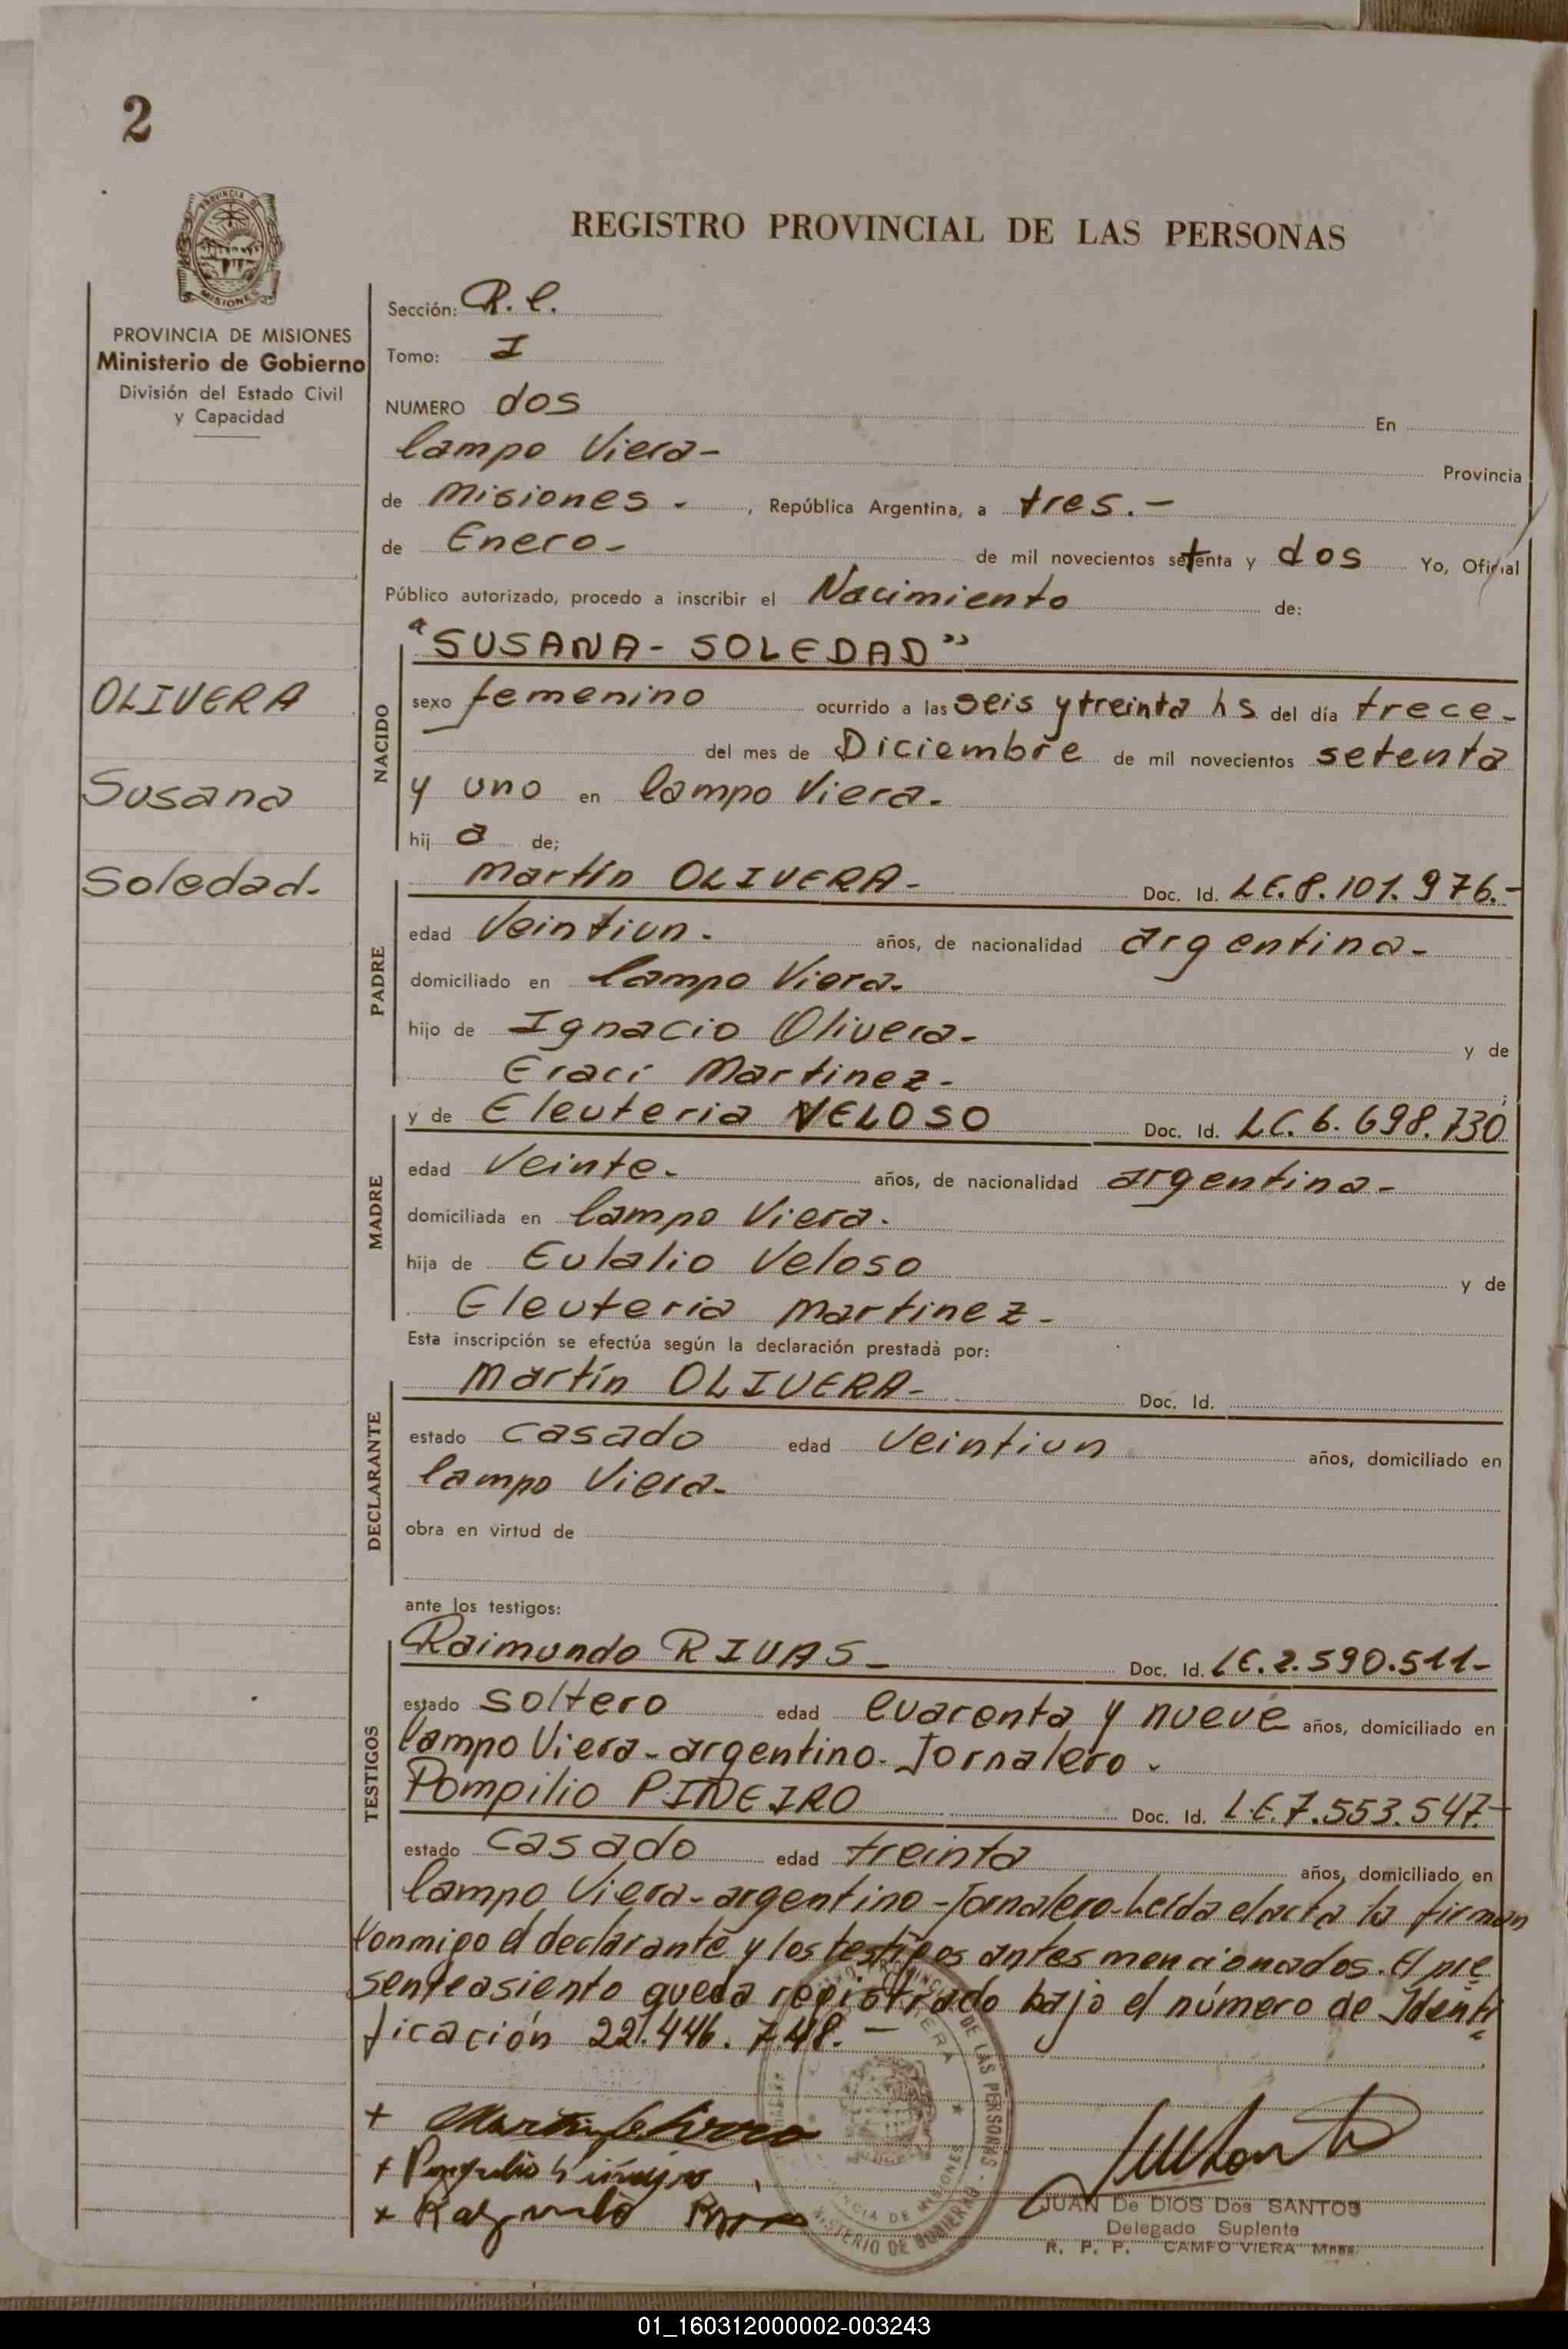 2
PROVINCIA DE MISIONES
Ministerio de Gobierno
División del Estado Civil
y Capacidad
OLIVERA
Susana
Soledad.
REGISTRO PROVINCIAL DE LAS PERSONAS
Sección: R.C.
Tomo: I
NUMERO dos En
Campo Viera- Provincia
de Misiones. , República Argentina, a tres.-
de Enero- de mil novecientos setenta y dos Yo, Oficial
Público autorizado, procedo a inscribir el Nacimiento de:
NACIDO
"SUSANA- SOLEDAD"
sexo femenino ocurrido a las seis y treinta hs del día trece-
del mes de Diciembre de mil novecientos setenta
y uno en Campo Viera.
hij a de;
PADRE
Martín OLIVERA- Doc. Id. L.E.8.101.976.-
edad Veintiun. años, de nacionalidad argentina-
domiciliado en Campo Viera.
hijo de Ignacio Olivera- y de
Eraci Martinez-
MADRE
y de Eleuteria VELOSO Doc. Id. L.C. 6. 698.730
edad Veinte. años, de nacionalidad argentina-
domiciliada en Campo Viera.
hija de Eulalio Veloso y de
Eleuteria Martinez-
Esta inscripción se efectúa según la declaración prestada por:
DECLARANTE
Martín OLIVERA- Doc. Id.
estado Casado edad Veintiun años, domiciliado en
Campo Viera.
obra en virtud de
ante los testigos:
TESTIGOS
Raimundo RIVAS- Doc. Id. L.E.2.590.511-
estado Soltero edad Cuarenta y nueve años, domiciliado en
Campo Viera-argentino-Jornalero.
Pompilio PIÑEIRO Doc. Id. L.E.7.553.547.-
estado Casado edad treinta años, domiciliado en
Campo Viera-argentino-Jornalero-Leída el acta la firman
Conmigo el declarante y los testigos antes mencionados. El pre
sente asiento queda registrado bajo el número de Identi
ficación 22.446.748.-
JUAN De DIOS Dos SANTOS
Delegado Suplente
R. P. P. CAMPO VIERA Mnes
01_160312000002-003243